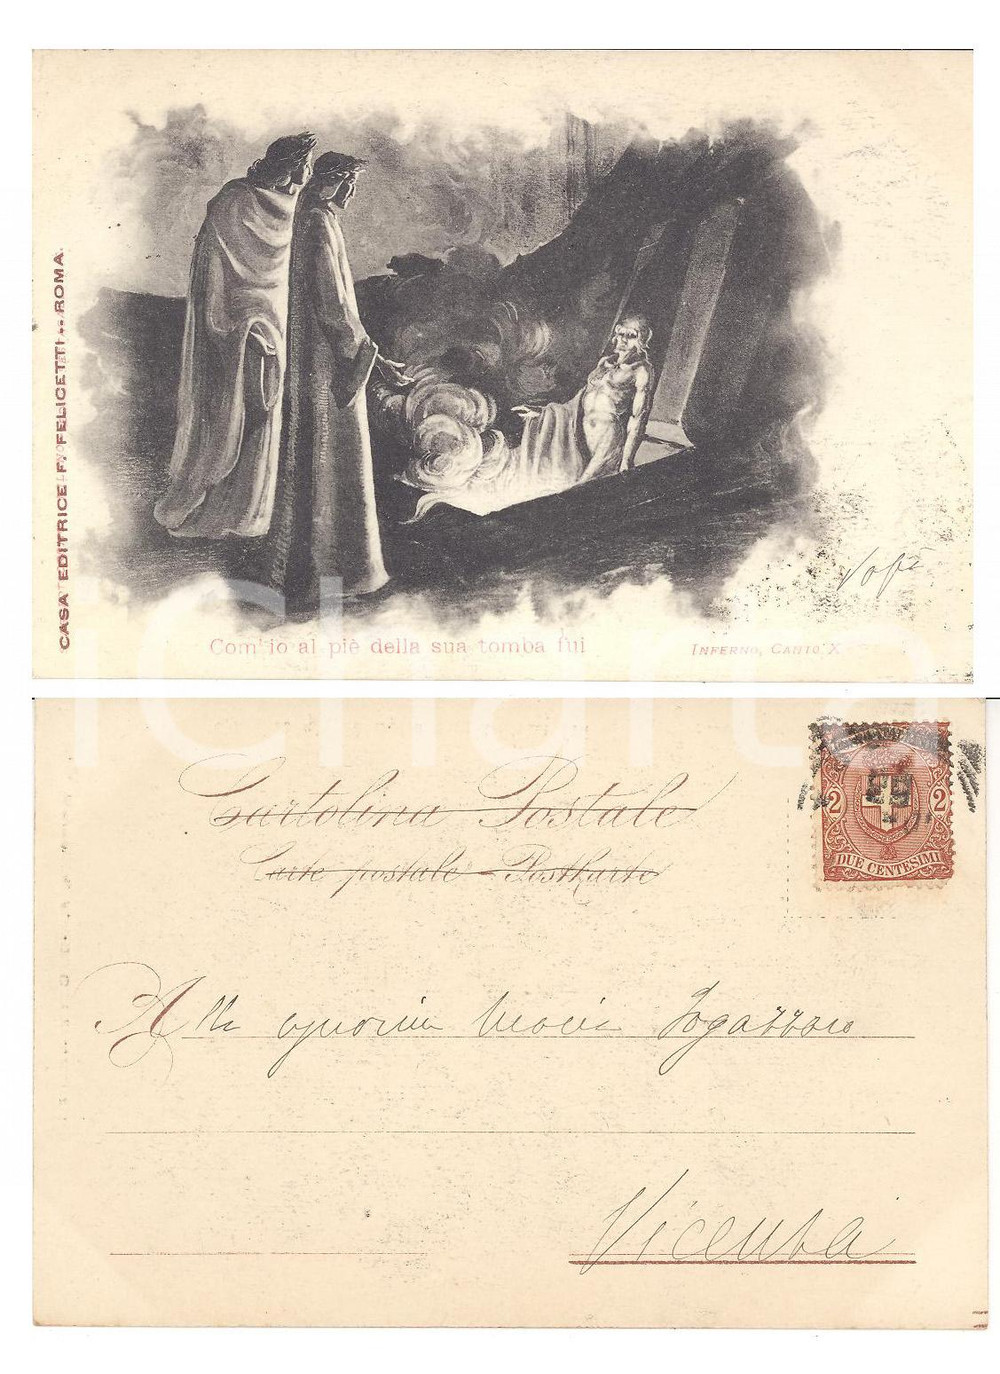 CASA EDITRICE F. FELICETTI .. ROMA.
Com'io al piè della sua tomba fui
INFERNO, CANTO X
iCharta
Cartolina Postale
Carte postale - Postkarte
2 2
DUE CENTESIMI
Alla signorina Maria Fogazzaro
Vicenza